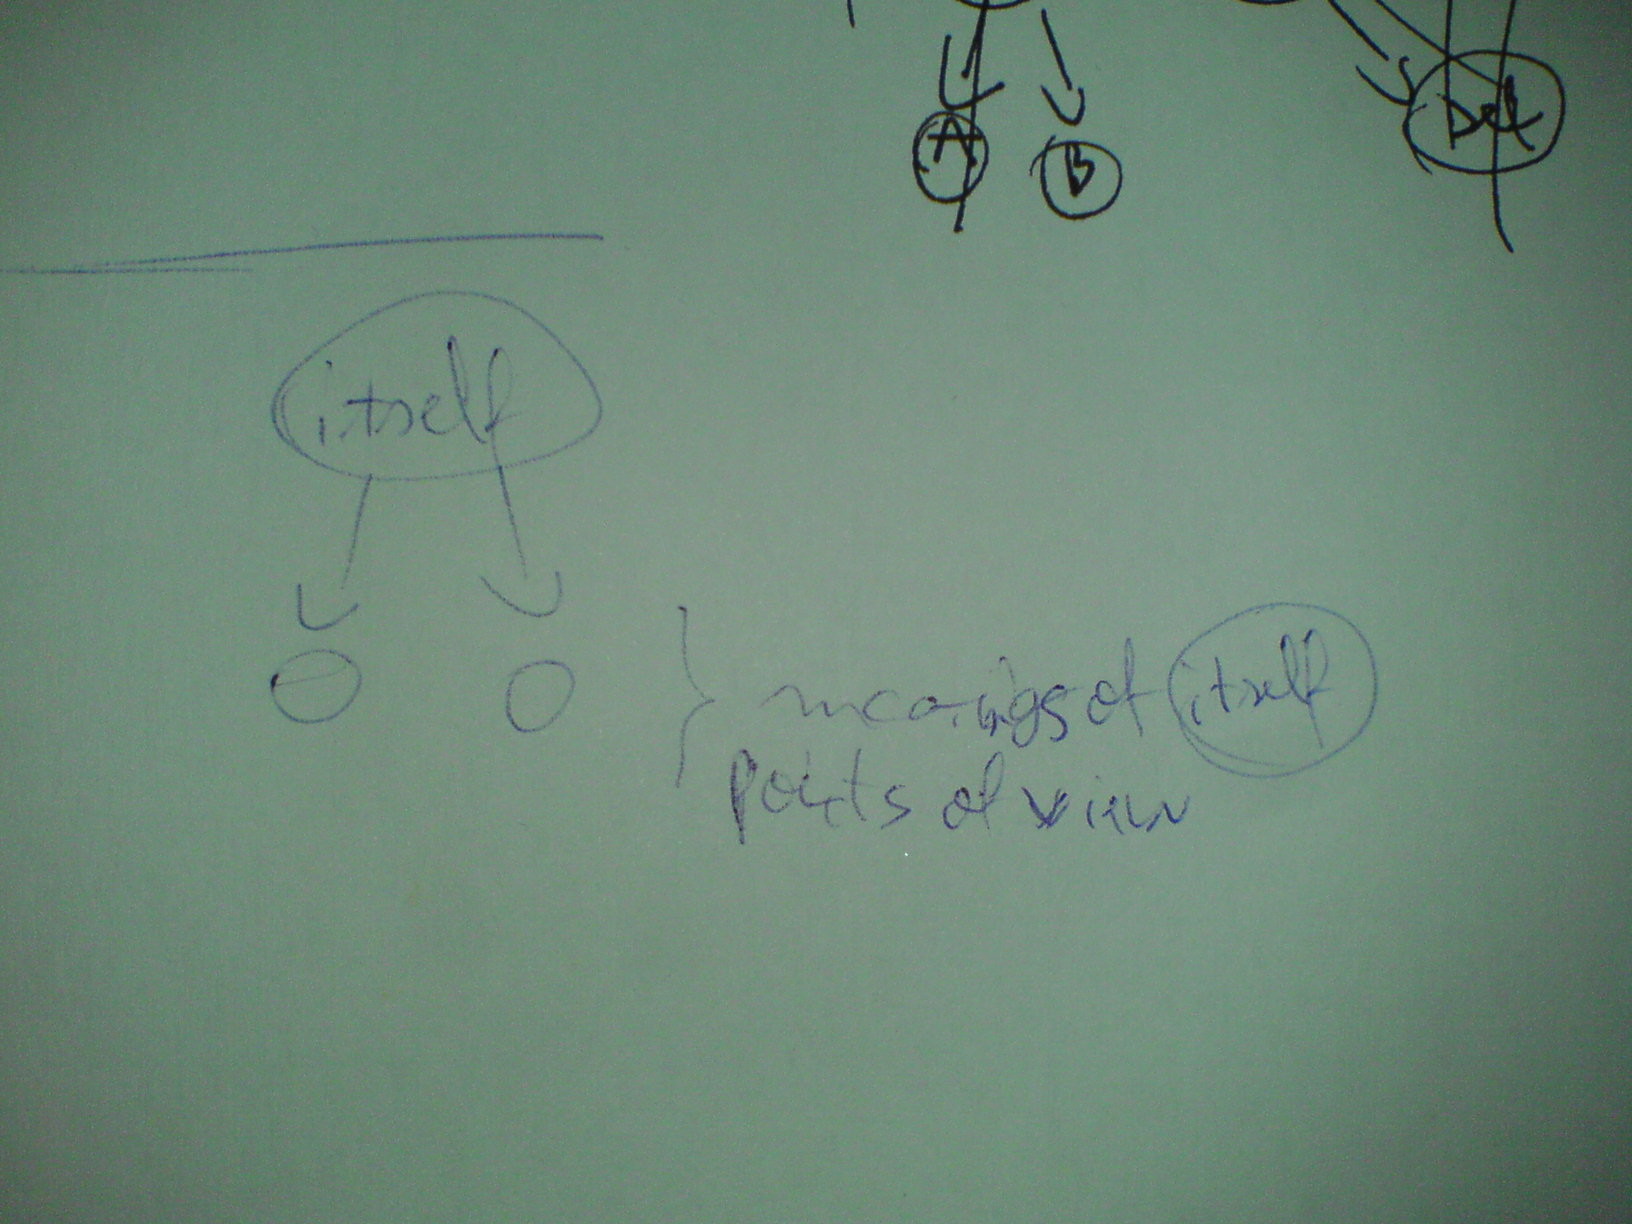 A
B
itself
meanings of itself
points of view